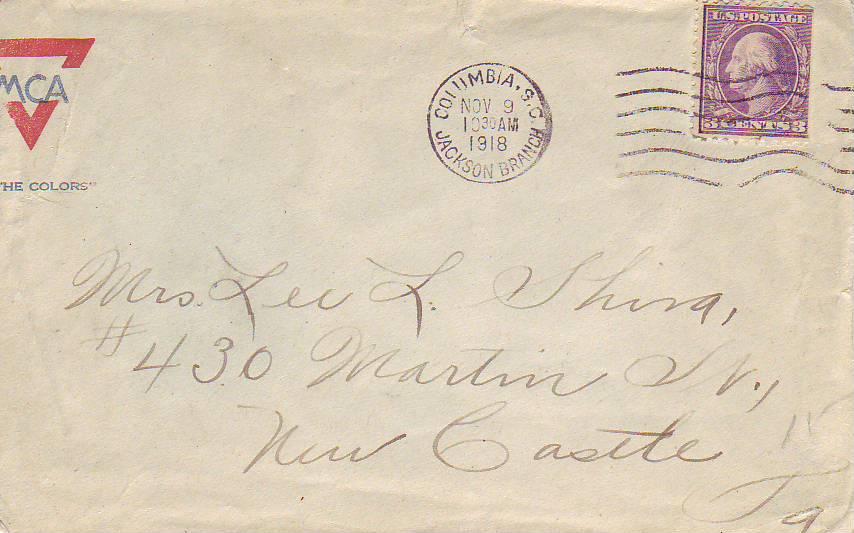 MCA
THE COLORS"
COLUMBIA, S.C.
NOV 9
1030AM
1918
JACKSON BRANCH
U.S. POSTAGE
3 CENTS 3
Mrs. Lee L. Shira,
#430 Martin St.,
New Castle
Pa